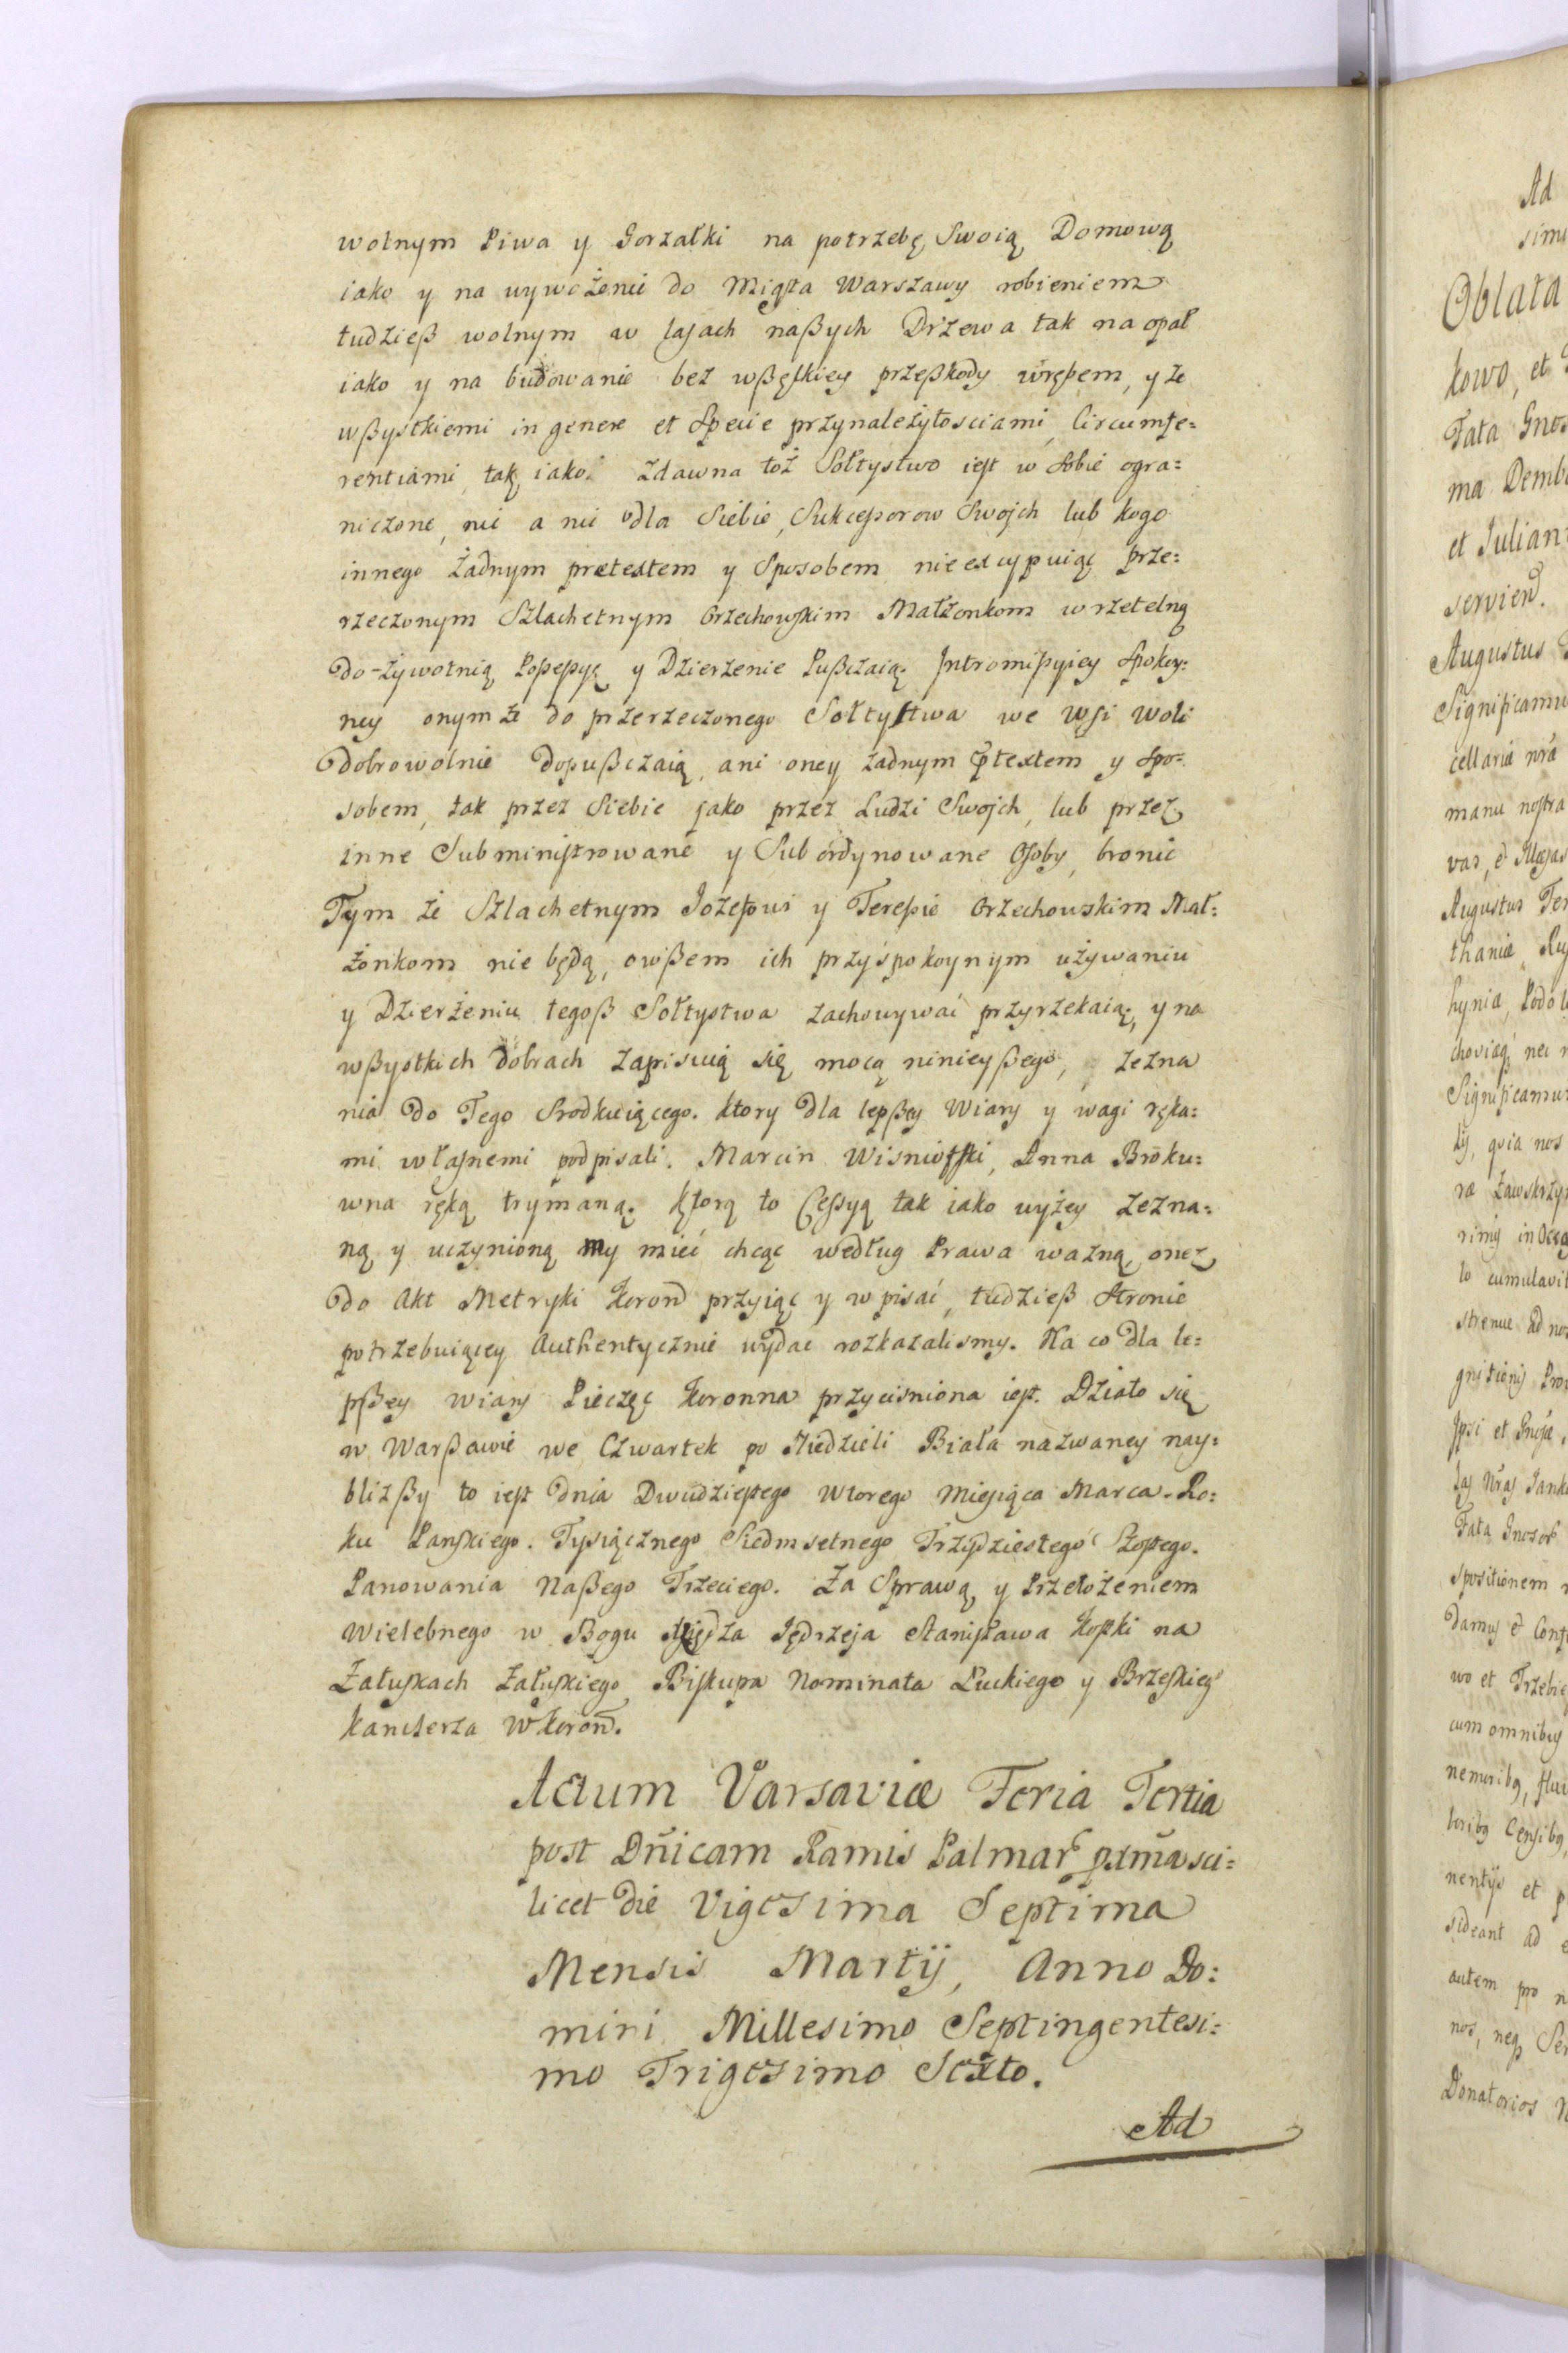 wolnym Piwa y Gorzałki na potrzebę Swoią Domową
iako y na wywożenie do Miasta Warszawy robieniem
tudzieß wolnym w lasach naßych Drzewa tak na opał
iako y na budowanie bez wßelkiey przeßkody wrębem, y ze
wßystkiemi in genere et Specie przynależytosciami, Circumfe=
rentiami, tak iako zdawna toż Sołtystwo iest w Sobie ogra=
niczone, nic a nic dla Siebie, Sukcessorow Swojch lub kogo
innego żadnym pretextem y Sposobem nieexcypuiąc prze=
rzeczonym Szlachetnym Orzechowskim Małżonkom w rzetelną
do-żywotnią Possessyą y Dzierzenie Pußczaią. Intromissyiey Spokoy=
ney onymże do przerzeczonego Sołtystwa we Wsi Woli
dobrowolnie dopußczaią, ani oney żadnym ptextem y Spo=
sobem, tak przez Siebie jako przez Ludzi Swojch, lub przez
inne Subministrowane y Subordynowane Osoby, bronić
Tym że Szlachetnym Jozefowi y Teressie Orzechowskim Mał=
żonkom nie będą, owßem ich przy spokoynym używaniu
y Dzierżeniu tegoß Sołtystwa zachowywać przyrzekaią, y na
wßystkich dobrach zapisuią się mocą ninieyßego, zezna
nia do Tego Srodkuiącego. ktory dla lepßey Wiary y wagi ręka=
mi własnemi podpisali. Marcin Wisniowski, Anna Broku=
wna ręką trymaną. ktorą to Cessyą tak iako wyżey zezna=
ną y uczynioną my mieć chcąc według Prawa ważną, onez
do Akt Metryki Koron przyiąc y wpisać, tudzieß Stronie
potrzebuiącey Authentycznie wydac rozkazalismy. Na co dla le=
pßey wiary Pieczęc Koronna przycisniona iest. Działo się
w Warßawie we Czwartek po Niedzieli Biała nazwaney nay=
blizßy to iest dnia Dwudziestego Wtorego Miesiąca Marca. Ro=
ku Panskiego. Tysiącznego Siedmsetnego Trzydziestego Szostego.
Panowania Naßego Trzeciego. Za Sprawą y Przełożeniem
Wielebnego w Bogu Xiędza Jędrzeja Stanisława Kostki na
Załuskach Załuskiego Biskupa Nominata Łuckiego y Brzeskieg
Kanclerza W Koron.
Actum Varsaviæ Feria Tertia
post Dnicam Ramis Palmar pxma sci=
licet die Vigesima Septima
Mensis Martij, Anno Do:
mini Millesimo Septingentesi:
mo Trigesimo Sexto.
Ad
Ad
Oblata
kowo, et
Fata
ma Demb
et Julian
servien.
Augustus
Significamus
cellariæ nra
manu nostra
Augustus
thaniæ
hyniæ, Podo
Significamus
ly, quia nos
rinij in
to cumulavit
strenue ad
Ipsi et
Fata
spositionem
damus
wo et
cum omnibus
nemoribg
nentijs et
sideant ad
autem pro
nos, neq
Donatorios